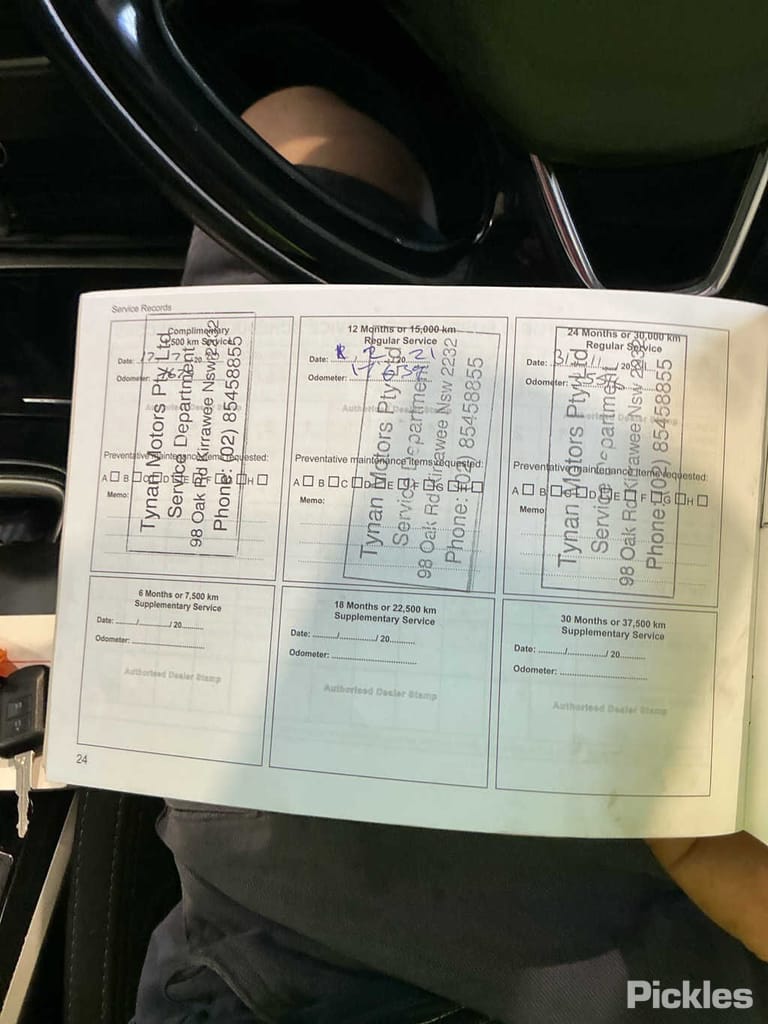 Service Records
Complimentary
1,500 km Service
Date: 17 / 7 / 20
Odometer:
Authorised Dealer Stamp
Tynan Motors Pty Ltd
Service Department
98 Oak Rd Kirrawee Nsw 2232
Phone: (02) 85458855
Preventative maintenance items requested:
A B C D E F G H
Memo:
12 Months or 15,000 km
Regular Service
Date: / 20 21
Odometer:
Authorised Dealer Stamp
Tynan Motors Pty Ltd
Service Department
98 Oak Rd Kirrawee Nsw 2232
Phone: (02) 85458855
Preventative maintenance items requested:
A B C D E F G H
Memo:
24 Months or 30,000 km
Regular Service
Date: 31 / 11 / 20
Odometer:
Authorised Dealer Stamp
Tynan Motors Pty Ltd
Service Department
98 Oak Rd Kirrawee Nsw 2232
Phone: (02) 85458855
Preventative maintenance items requested:
A B C D E F G H
Memo:
6 Months or 7,500 km
Supplementary Service
Date: ......../......../ 20.........
Odometer: ..............................
Authorised Dealer Stamp
18 Months or 22,500 km
Supplementary Service
Date: ........./............./ 20.........
Odometer: ..............................
Authorised Dealer Stamp
30 Months or 37,500 km
Supplementary Service
Date: ........./............./ 20.........
Odometer: ..............................
Authorised Dealer Stamp
24
Pickles